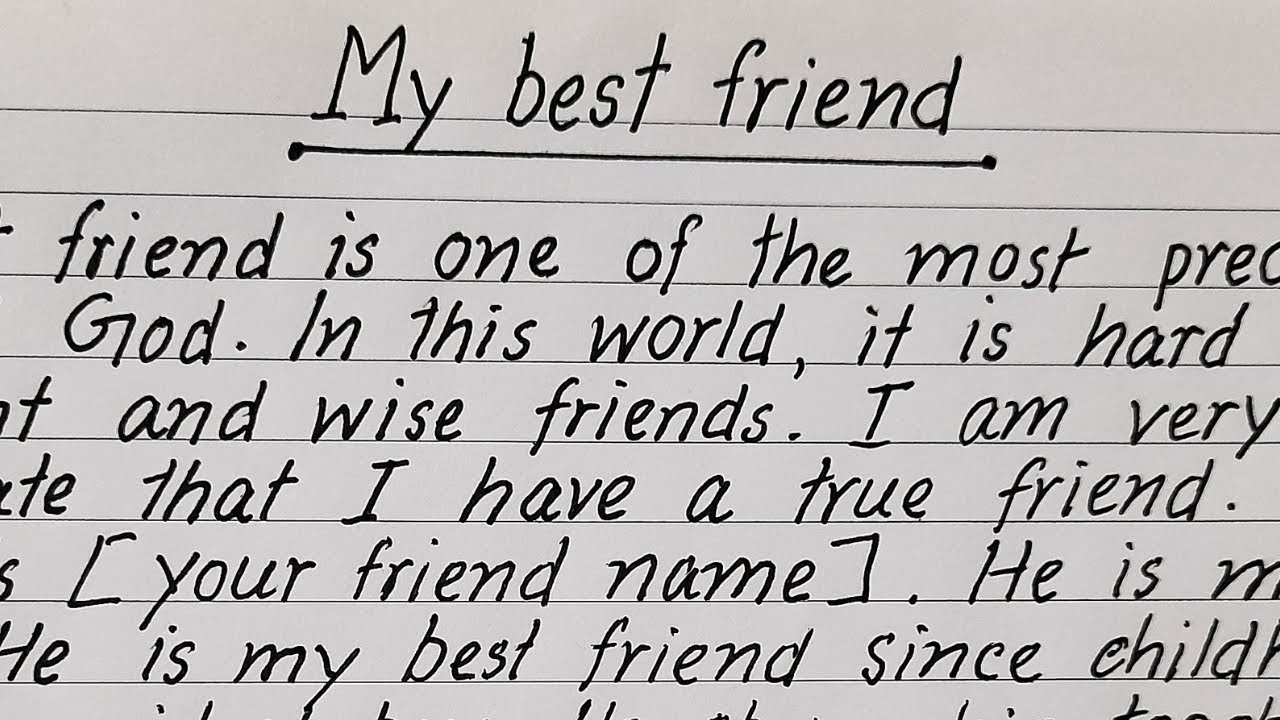 My best friend
friend is one of the most prec
God. In this world, it is hard
nt and wise friends. I am very
ate that I have a true friend.
s [your friend name]. He is m
He is my best friend since childh